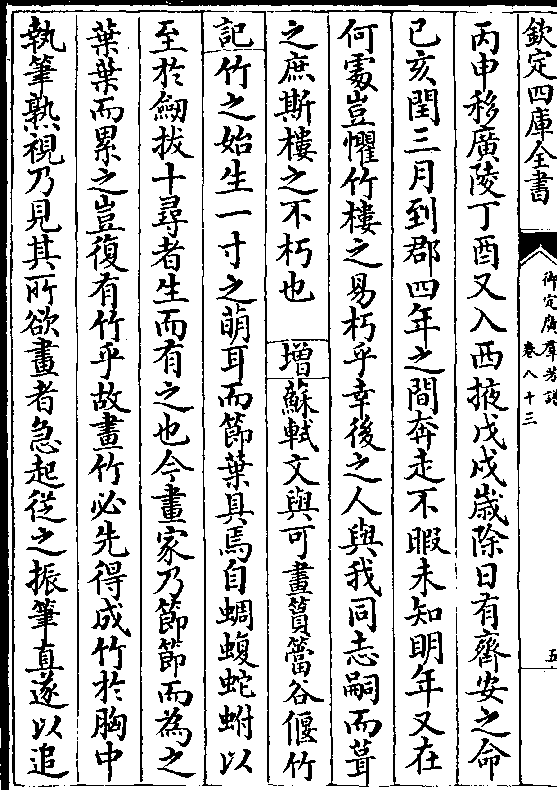 欽定四庫全書
御定廣羣芳譜
卷八十三
五
丙申移廣陵丁酉又入西掖戊戌歲除日有齊安之命
已亥閏三月到郡四年之間奔走不暇未知明年又在
何處豈懼竹樓之易朽乎幸後之人與我同志嗣而葺
之庶斯樓之不朽也 增蘇軾文與可畫篔簹谷偃竹
記竹之始生一寸之萌耳而節葉具焉自蜩蝮蛇蚹以
至於劒拔十尋者生而有之也今畫家乃節節而為之
葉葉而累之豈復有竹乎故畫竹必先得成竹於胸中
執筆熟視乃見其所欲畫者急起從之振筆直遂以追